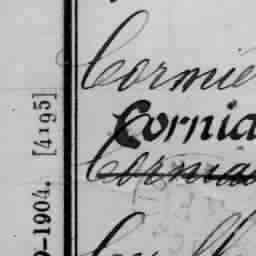 Cormie
Cornia
Cornia
9-1904. [4195]